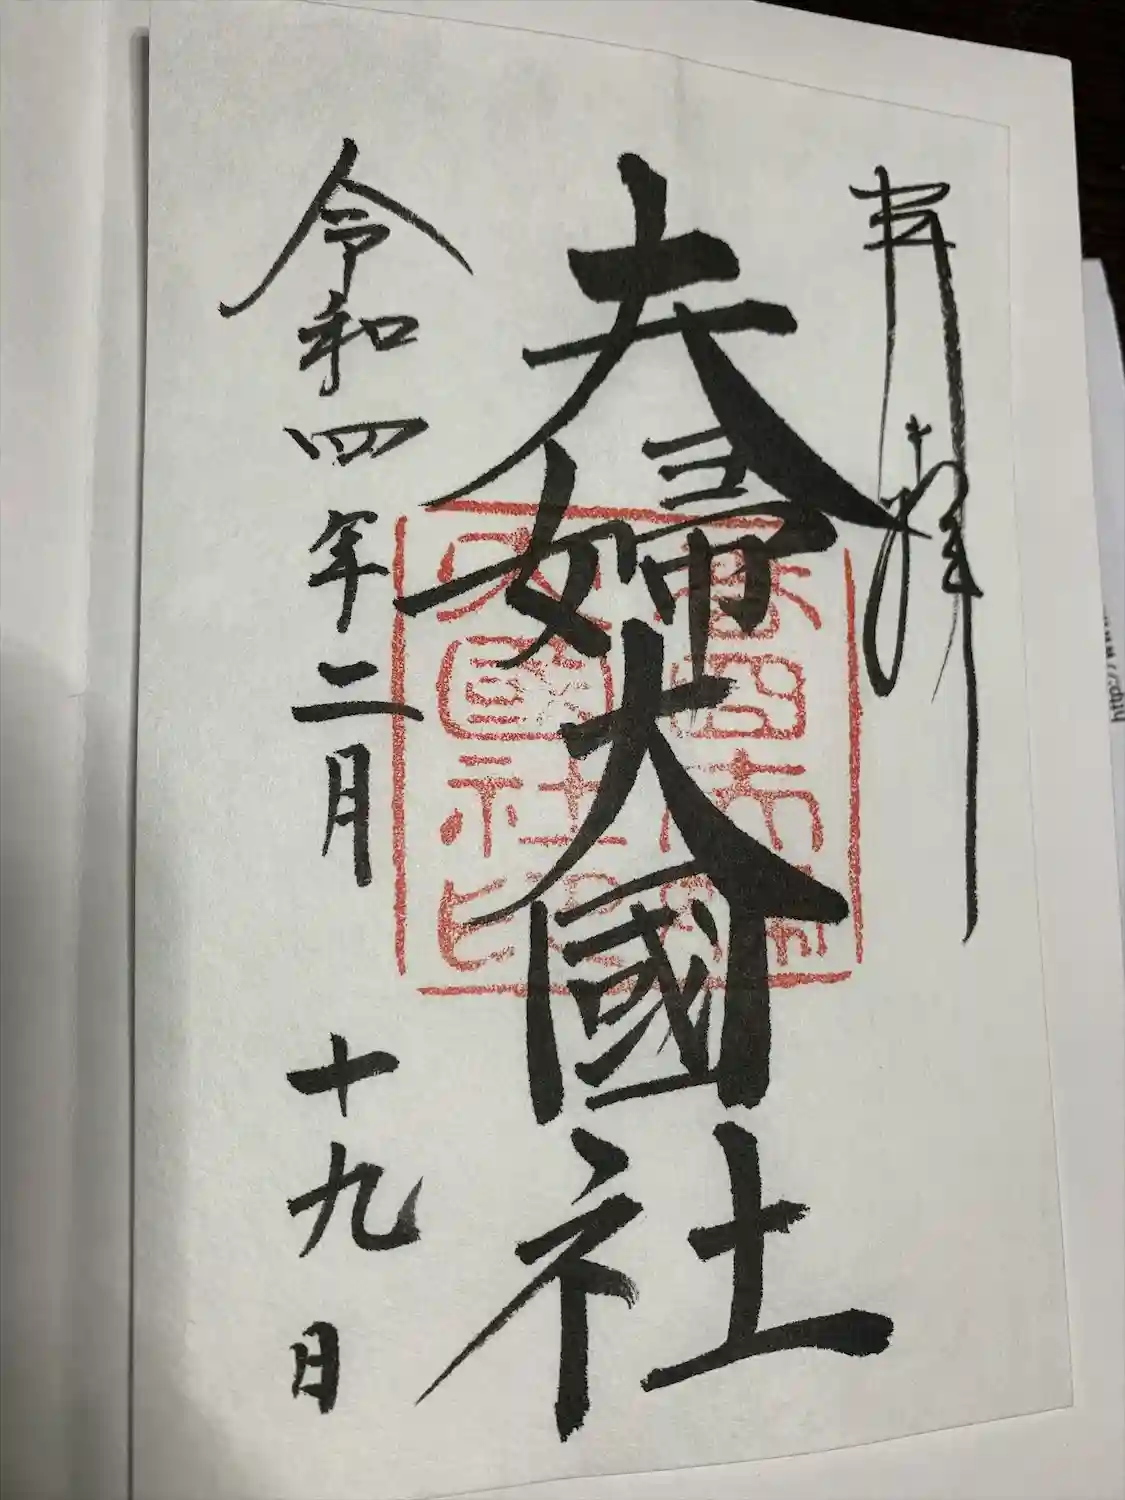 奉拝
夫婦大國社
令和四年二月十九日
http://www